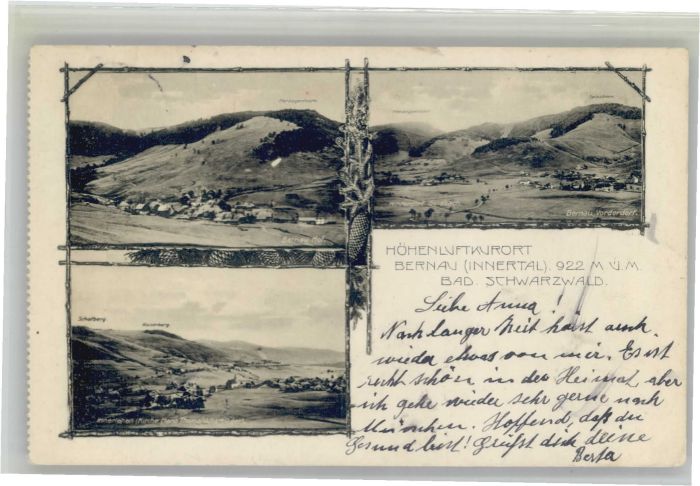 Herzogenhorn
Bernau, Vorderdorf.
HÖHENLUFTKURORT
BERNAU (INNERTAL). 922 M Ü.M.
BAD. SCHWARZWALD.
Scharberg
Kaiserberg
Innerlehen (Kirche
Liebe Anna!
Nach langer Zeit hörst auch
wieder etwas von mir. Es ist
recht schön in der Heimat aber
ich gehe wieder sehr gerne nach
München. Hoffend, daß du
Gesund bist! Grüßt dich deine
Berta